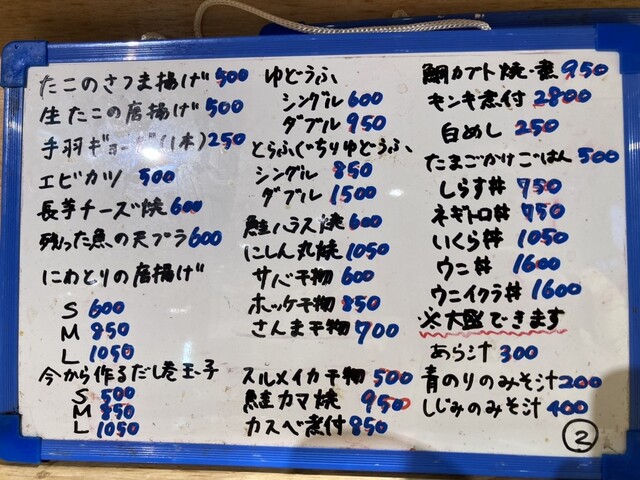 たこのさつま揚げ 500
生たこの唐揚げ 500
手羽ギョーザ(1本) 250
エビカツ 500
長芋チーズ焼 600
残った魚の天プラ 600
にわとりの唐揚げ
S 600
M 850
L 1050
今から作るだし巻玉子
S 500
M 850
L 1050
ゆどうふ
シングル 600
ダブル 950
とらふぐちりゆどうふ
シングル 850
ダブル 1500
鮭ハラス焼 600
にしん丸焼 1050
サバ干物 600
ホッケ干物 850
さんま干物 700
スルメイカ干物 500
鮭カマ焼 950
カスベ煮付 850
鯛カブト焼・煮 950
キンキ煮付 2800
白めし 250
たまごかけごはん 500
しらす丼 750
ネギトロ丼 750
いくら丼 1050
ウニ丼 1600
ウニイクラ丼 1600
※大盛できます
あら汁 300
青のりのみそ汁 200
しじみのみそ汁 400
2